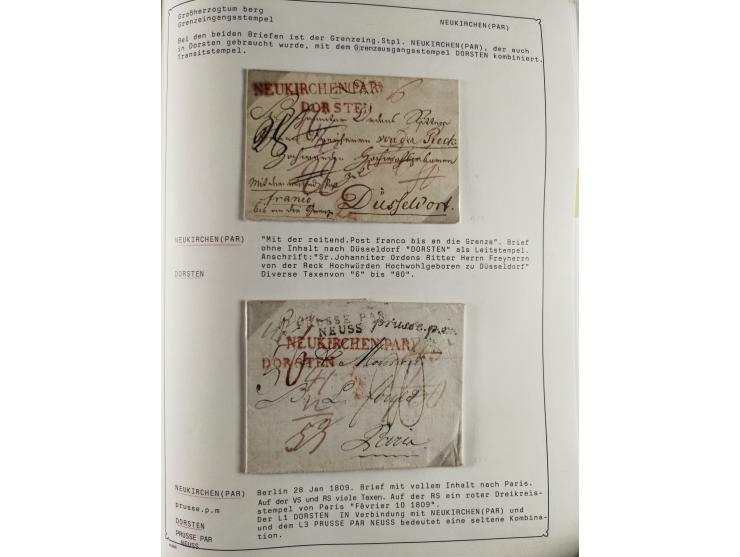 Großherzogtum berg
Grenzeingangsstempel
NEUKIRCHEN(PAR)
Bei den beiden Briefen ist der Grenzeing.Stpl. NEUKIRCHEN(PAR), der auch
in Dorsten gebraucht wurde, mit dem Grenzausgangsstempel DORSTEN kombiniert.
Transitstempel.
NEUKIRCHEN.PAR
DORSTEN
von der Reck
franco
Düsseldorf.
NEUKIRCHEN(PAR)
DORSTEN
"Mit der reitend.Post franco bis an die Grenze". Brief
ohne Inhalt nach Düsseldorf "DORSTEN" als Leitstempel.
Anschrift:"Sr.Johanniter Ordens Ritter Herrn Freyherrn
von der Reck Hochwürden Hochwohlgeboren zu Düsseldorf"
Diverse Taxenvon "6" bis "80".
PRUSSE PAR
NEUSS prusse.p.m
NEUKIRCHEN.PAR
DORSTEN
Paris
NEUKIRCHEN(PAR)
prusse.p.m
DORSTEN
PRUSSE PAR
NEUSS
Berlin 28 Jan 1809. Brief mit vollem Inhalt nach Paris.
Auf der VS und RS viele Taxen. Auf der RS ein roter Dreikreis-
stempel von Paris "Fêvrier 10 1809".
Der L1 DORSTEN IN Verbindung mit NEUKIRCHEN(PAR) und
und dem L3 PRUSSE PAR NEUSS bedeutet eine seltene Kombina-
tion.